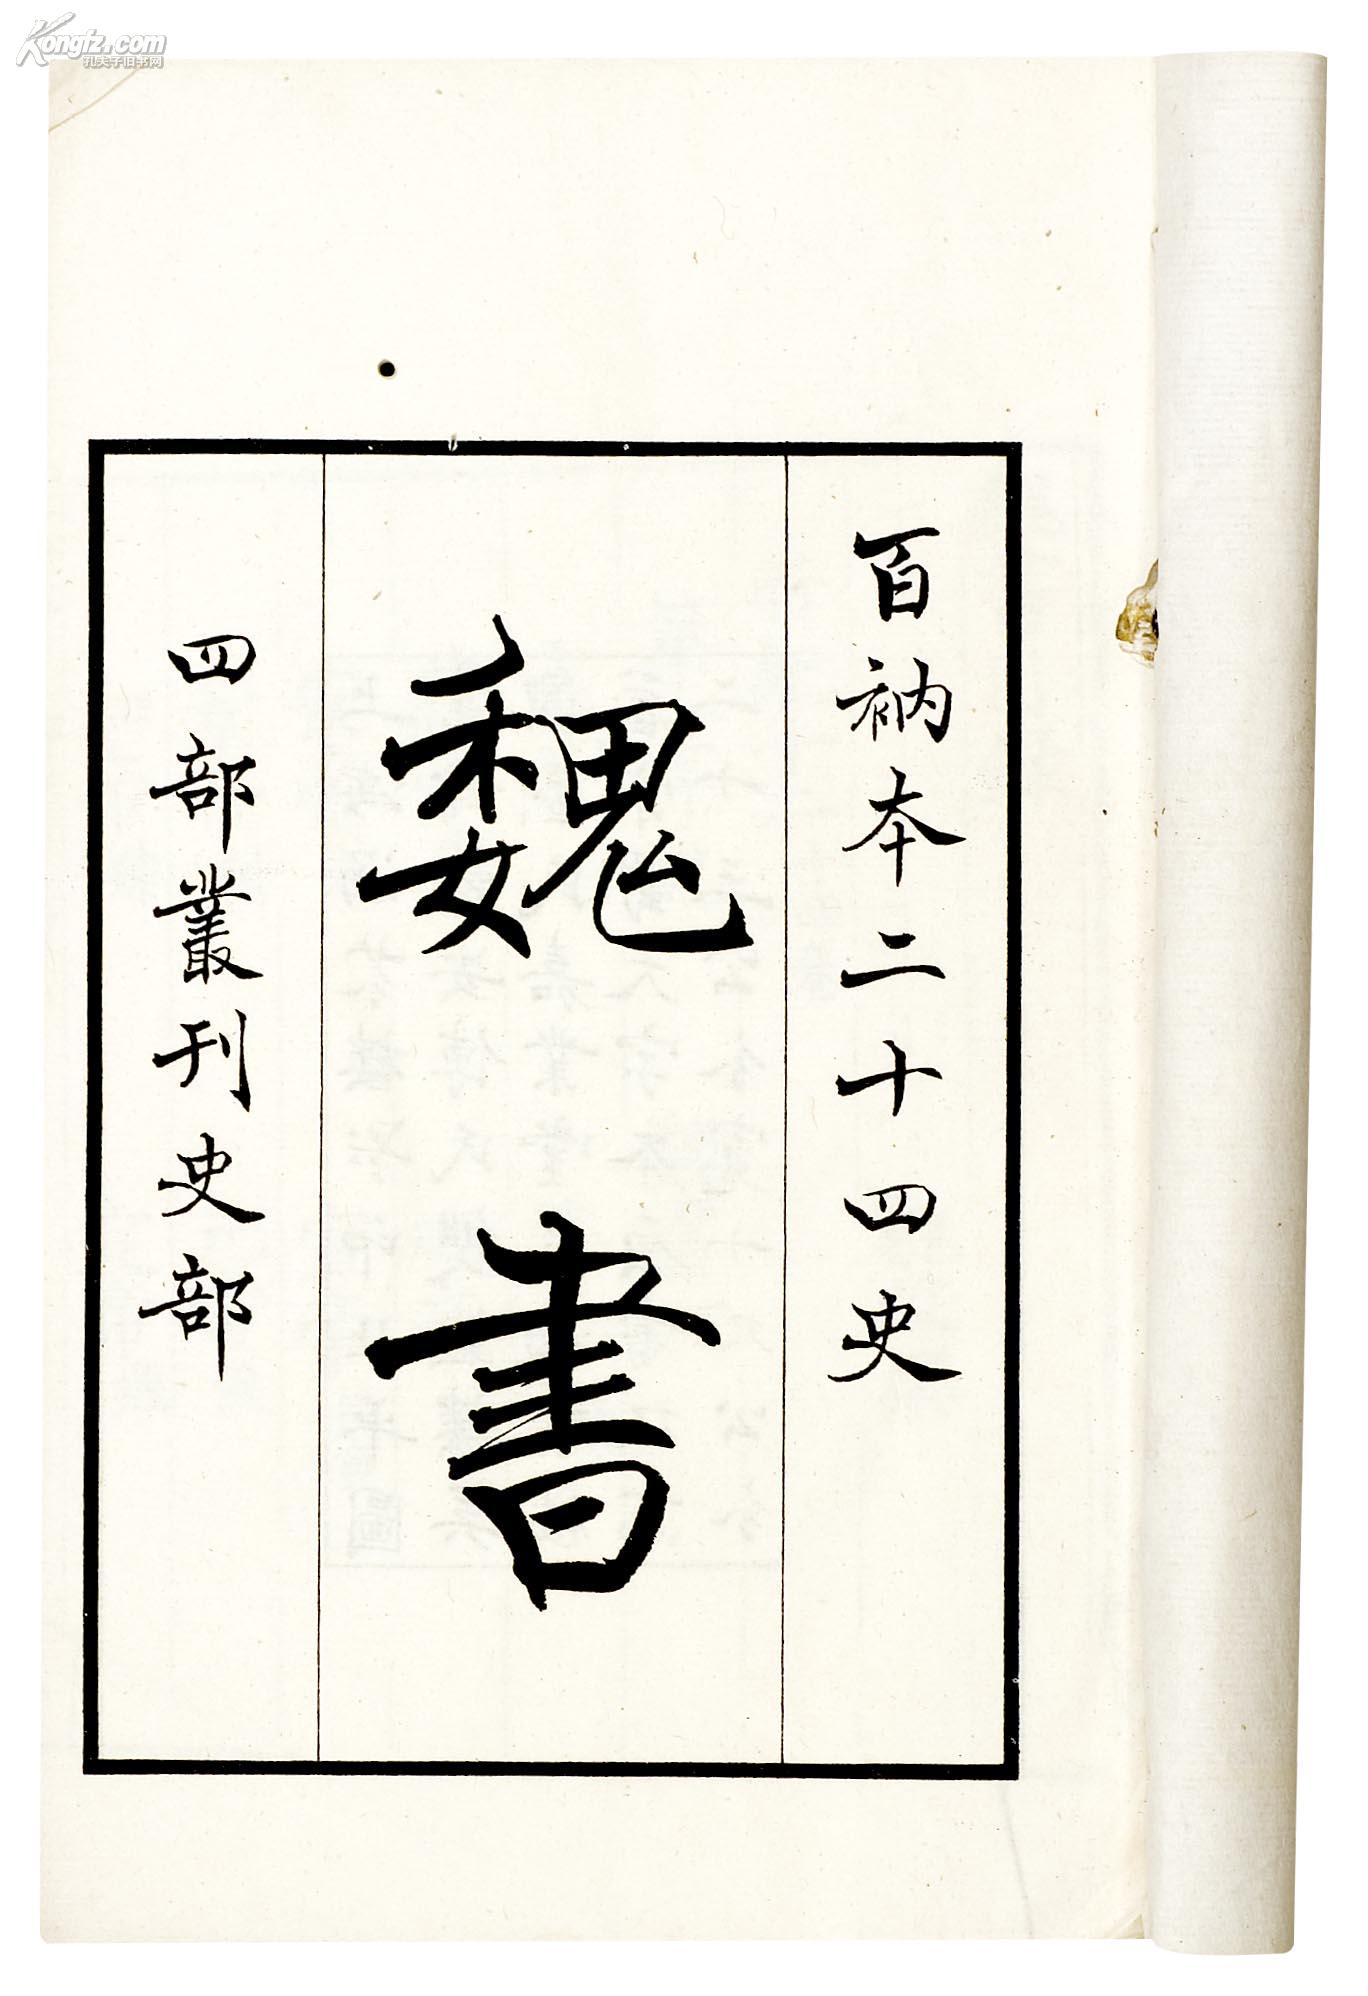 Kongfz.com
孔夫子旧书网
百衲本二十四史
魏書
四部叢刊史部